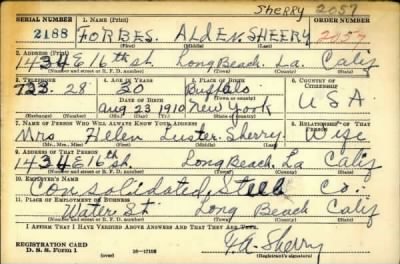 Sherry 2057
SERIAL NUMBER 1. NAME (Print) ORDER NUMBER
2188 FORBES. ALDEN. SHEERY 2057
(First) (Middle) (Last)
2. ADDRESS (Print)
1434 E 16th st. Long Beach. La. Calif
(Number and street or R. F. D. number) (Town) (County) (State)
3. TELEPHONE 4. AGE IN YEARS 5. PLACE OF BIRTH 6. COUNTRY OF CITIZENSHIP
733. 28 30 Buffalo
DATE OF BIRTH (Town or county) U S A
Aug 23 1910 New York
(Exchange) (Number) (Mo.) (Day) (Yr.) (State or country)
7. NAME OF PERSON WHO WILL ALWAYS KNOW YOUR ADDRESS 8. RELATIONSHIP OF THAT PERSON
Mrs Helen Luster. Sherry. Wife
(Mr., Mrs., Miss) (First) (Middle) (Last)
9. ADDRESS OF THAT PERSON
1434 E 16th st. Long Beach. La Calif
(Number and street or R. F. D. number) (Town) (County) (State)
10. EMPLOYER'S NAME
Consolidated, Steel Co.
11. PLACE OF EMPLOYMENT OR BUSINESS
Water St. Long Beach Calif
(Number and street or R. F. D. number) (Town) (County) (State)
I AFFIRM THAT I HAVE VERIFIED ABOVE ANSWERS AND THAT THEY ARE TRUE.
REGISTRATION CARD
D. S. S. Form 1 (over) 16—17105 F. A. Sherry
(Registrant's signature)